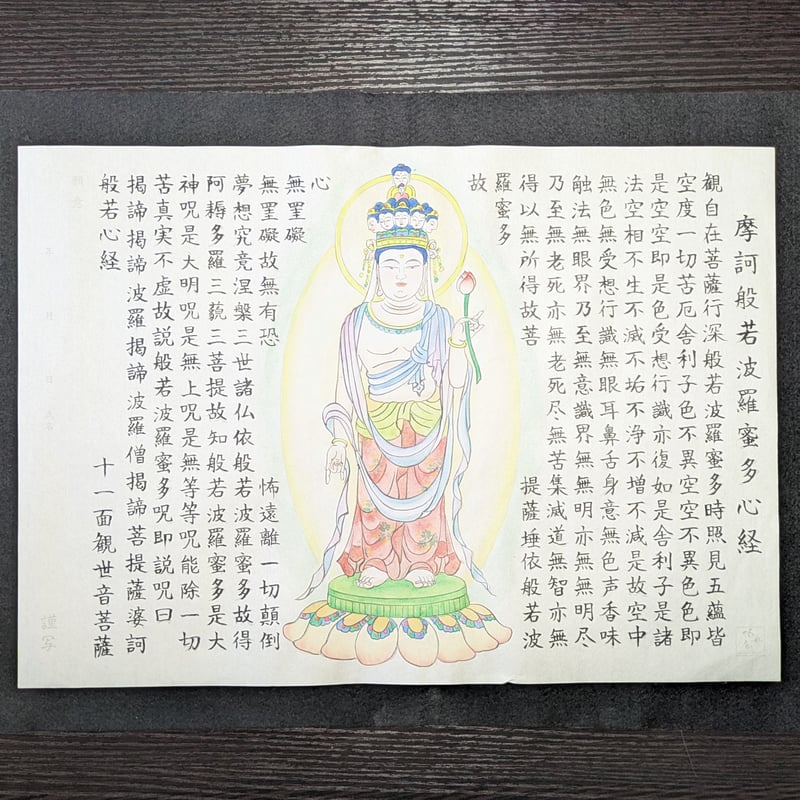 摩訶般若波羅蜜多心経
観自在菩薩行深般若波羅蜜多時照見五蘊皆
空度一切苦厄舎利子色不異空空不異色色即
是空空即是色受想行識亦復如是舎利子是諸
法空相不生不滅不垢不浄不増不減是故空中
無色無受想行識無眼耳鼻舌身意無色声香味
触法無眼界乃至無意識界無無明亦無無明尽
乃至無老死亦無老死尽無苦集滅道無智亦無
得以無所得故菩 提薩埵依般若波
羅蜜多
故
心
無罣礙
無罣礙故無有恐 怖遠離一切顛倒
夢想究竟涅槃三世諸仏依般若波羅蜜多故得
阿耨多羅三藐三菩提故知般若波羅蜜多是大
神呪是大明呪是無上呪是無等等呪能除一切
苦真実不虚故説般若波羅蜜多呪即説呪曰
揭諦揭諦 波羅揭諦 波羅僧揭諦 菩提薩婆訶
般若心経 十一面観世音菩薩
願意
年 月 日
謹写